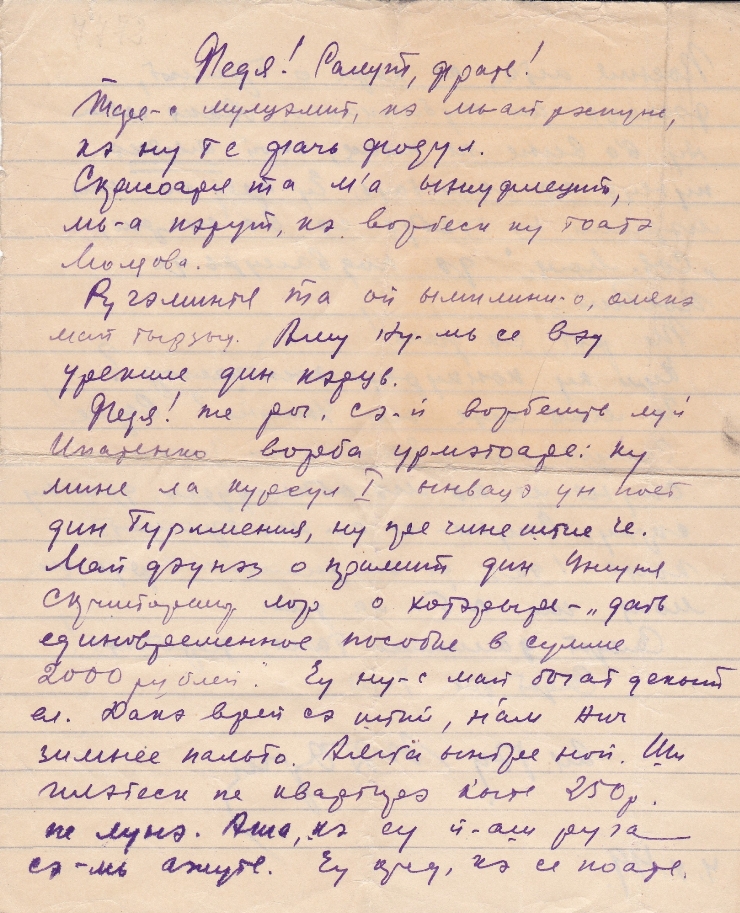 Педя! Салут, фрате!
Таре-с мулцэмит, кэ мь-ай рэспунс,
кэ ну те фачь фодул.
Скрисоаря та м'а ынкуражят,
мь-а пэрут, кэ ворбеск ку тоатэ
Молдова.
Ругэминтя та ой ымплини-о, атыта кэ
май тырзыу. Аму ну-мь се вэд
урекиле дин кэрць.
Педя! те рог, сэ-й ворбешть луй
Игнатенко ворба урмэтоаре: ку
мине ла курсул I ынвацэ ун поет
дин Туркмения, ну пре чине штие че.
Май дэунэз о примит дин Униуня
Скрииторилор лор о хотэрыре - „дать
единовременное пособие в сумме
2000 рублей". Еу ну-с май богат декыт
ел. Дакэ врей сэ штий, н'ам нич
зимнее пальто. Аиста ынтре ной. Ши
плэтеск пе квартирэ кыте 250 р.
пе лунэ. Аша, кэ еу й-аш руга
сэ-мь ажуте. Еу кред, кэ се поате.